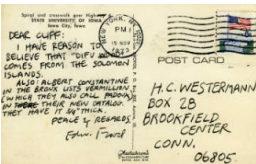 Spiral and crosswalk over Highway
STATE UNIVERSITY OF IOWA
Iowa City, Iowa
DEAR CLIFF:
I HAVE REASON TO
BELIEVE THAT "DIFU
COMES FROM THE SOLOMON
ISLANDS.
ALSO: ALBERT CONSTANTINE
IN THE BRONX LISTS VERMILLION
(WHICH THEY ALSO CALL PADOUK)
IN THEIR NEW CATALOG.
THEY HAVE IT 4/4" THICK.
PEACE & REGARDS
NEW YORK, N.Y.
PM
15 NOV
POST CARD
H.C. WESTERMANN
BOX 28
BROOKFIELD
CENTER
CONN.
06805